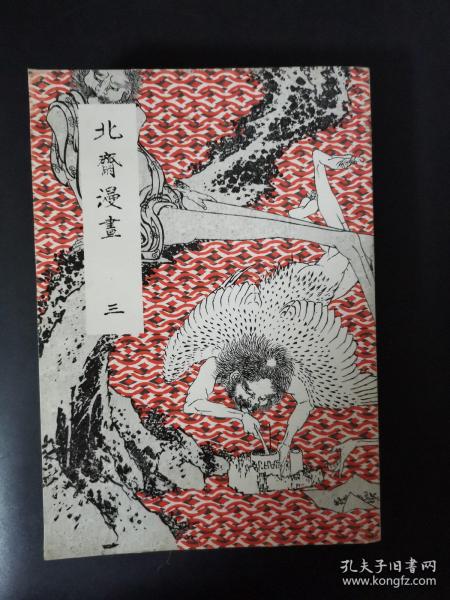 北齋漫畫 三
孔夫子旧书网
www.kongfz.com